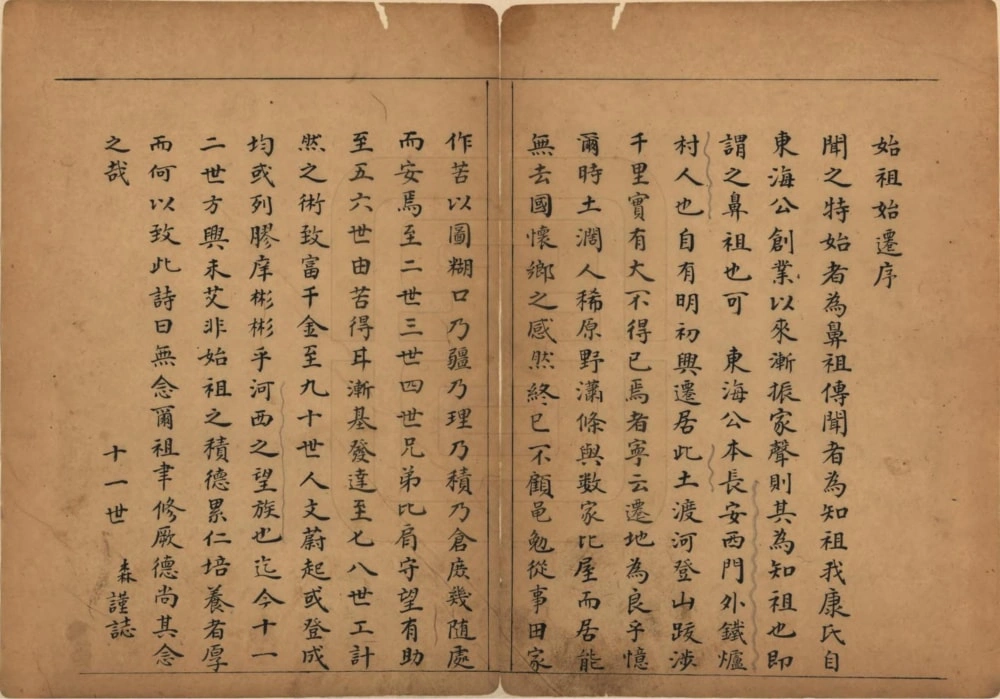 始祖始遷序
聞之特始者為鼻祖傳聞者為知祖我康氏自
東海公創業以來漸振家聲則其為知祖也即
謂之鼻祖也可　東海公本長安西門外鐵爐
村人也自有明初興遷居此土渡河登山跋涉
千里實有大不得已焉者寧云遷地為良乎憶
爾時土濶人稀原野瀟條與数家比屋而居能
無去國懷鄉之感然終已不顧黽勉從事田家
作苦以圖糊口乃疆乃理乃積乃倉庻幾随處
而安焉至二世三世四世兄弟比肩守望有助
至五六世由苦得甘漸基發達至七八世工計
然之術致富千金至九十世人文蔚起或登成
均或列膠庠彬彬乎河西之望族也迄今十一
二世方興未艾非始祖之積德累仁培養者厚
而何以致此詩曰無念爾祖聿修厥德尚其念
之哉
十一世　森謹誌